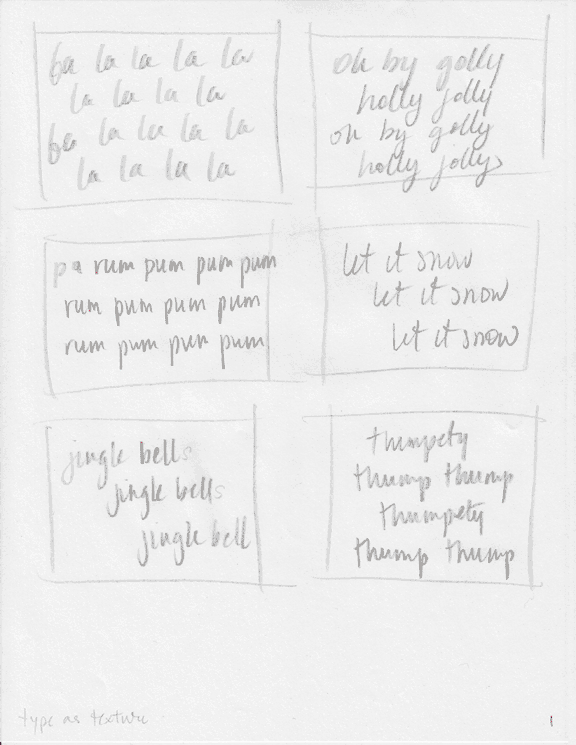 fa la la la la
la la la la
fa la la la la
la la la la
oh by golly
holly jolly
oh by golly
holly jolly
pa rum pum pum pum
rum pum pum pum
rum pum pum pum
let it snow
let it snow
let it snow
jingle bells
jingle bells
jingle bell
thumpety
thump thump
thumpety
thump thump
type as texture
1